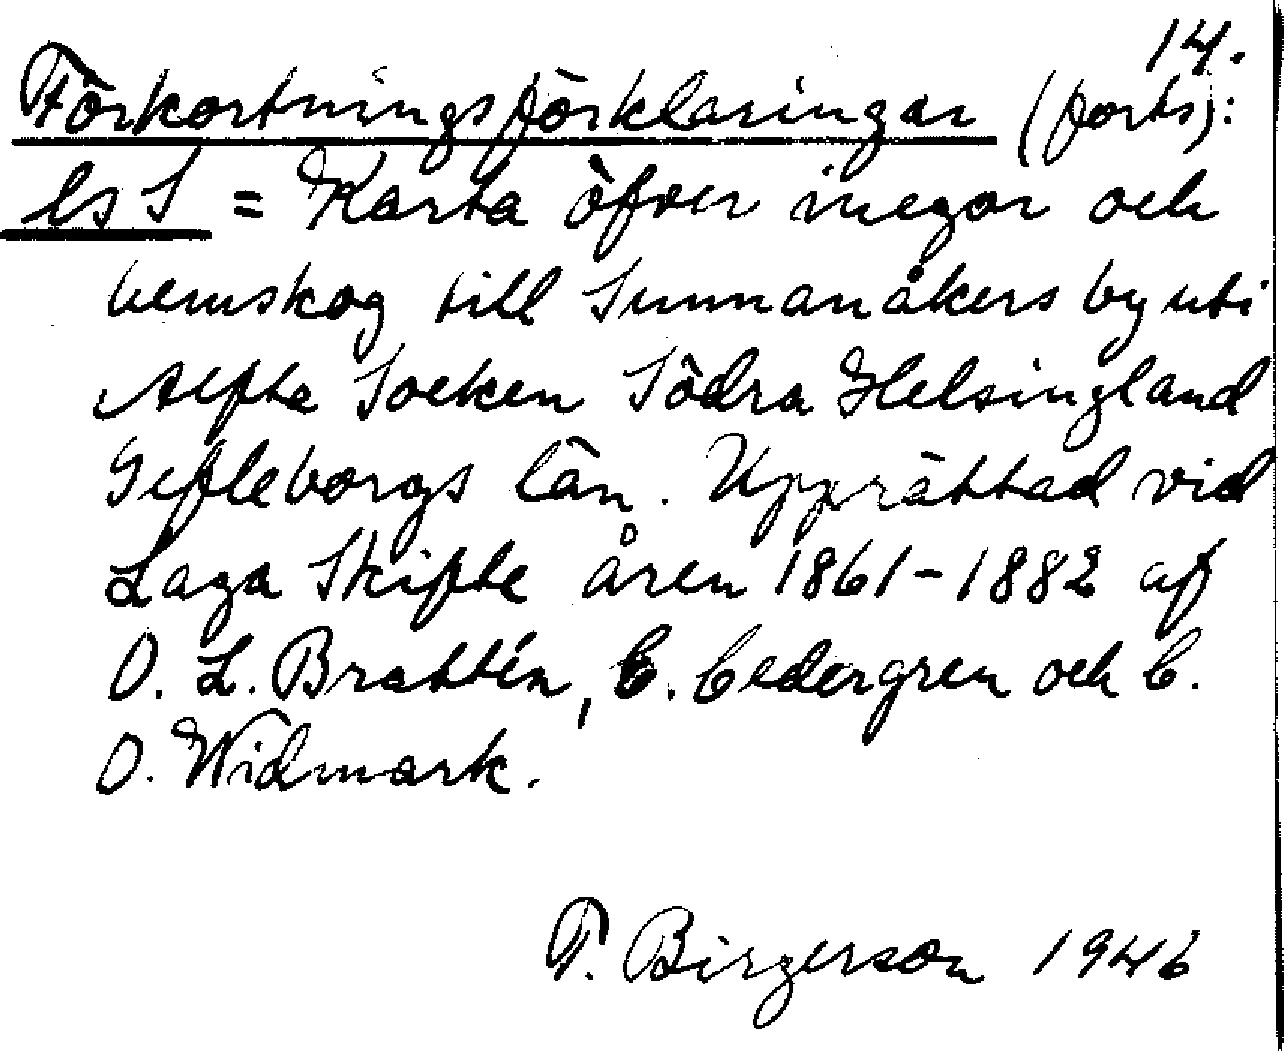 14.
Förkortningsförklaringar (forts):
ls S = Karta öfver inegor och
hemskog till Sunnanåkers by uti
Alfta Socken Södra Helsingland
Gefleborgs län. Upprättad vid
Laga Skifte åren 1861-1882 af
O. L. Brattén, C. Cedergren och C.
O. Widmark.
T. Birgerson 1946